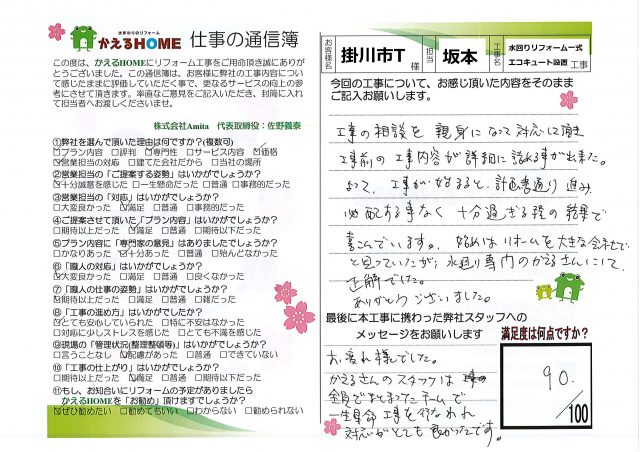 水まわりのリフォーム
かえるHOME 仕事の通信簿
この度は、かえるHOMEにリフォーム工事をご用命頂き誠にありがとうございました。この通信簿は、お客様に弊社の工事内容について感じたままに評価していただく事で、更なるサービスの向上の参考にさせて頂きます。率直なご意見をご記入いただき、封筒に入れて担当者へお渡しくださいませ。
株式会社Amita 代表取締役：佐野義泰
①弊社を選んで頂いた理由は何ですか?(複数可)
☑プラン内容 □評判 ☑専門性 □サービス内容 ☑価格
☑営業担当の対応 □建てた会社だから □当社の場所
②営業担当の「ご提案する姿勢」はいかがでしょうか?
☑十分誠意を感じた □一生懸命だった □普通 □事務的だった
③営業担当の「対応」はいかがでしょうか?
□大変良かった ☑満足 □普通 □事務的だった
④ご提案させて頂いた「プラン内容」はいかがでしょうか?
□期待以上だった ☑満足 □普通 □期待以下だった
⑤プラン内容に「専門家の意見」はありましたでしょうか?
□かなりあった ☑十分あった □普通 □殆んどなかった
⑥「職人の対応」はいかがでしょうか?
☑大変良かった □満足 □普通 □良くなかった
⑦「職人の仕事の姿勢」はいかがでしょうか?
☑期待以上だった □満足 □普通 □雑だった
⑧「工事の進め方」はいかがでしたか?
☑とても安心していられた □特に不安はなかった
□対応に少しストレスを感じた □とても不満を感じた
⑨現場の「管理状況(整理整頓等)」はいかがでしょうか?
□言うことなし ☑配慮があった □普通 □できていない
⑩「工事の仕上がり」はいかがでしょうか?
□期待以上だった ☑満足 □普通 □期待以下だった
⑪もし、お知合いにリフォームの予定がありましたら
かえるHOMEを「お勧め」頂けますでしょうか?
☑ぜひ勧めたい □勧めてもいい □わからない □勧められない
お客様名 掛川市T 様 担当 坂本 工事名 水回りリフォーム一式 エコキュート設置 工事
今回の工事について、お感じ頂いた内容をそのまま
ご記入お願いします。
工事の相談を親身になって対応して頂き
工事前の工事内容が詳細に詰れる事が出来た。
よって、工事が始まると、計画書通り進み
心配する事なく 十分過ぎる程の結果で
喜こんでいます。始めはリホームを大きな会社でと
思っていたが、水廻り専門のかえるさんにして、
正解でした。
ありがとうございました。
最後に本工事に携わった弊社スタッフへの
メッセージをお願いします
大変お疲れ様でした。
かえるさんのスタッフは
全員でまとまったチームで
一生懸命工事を行なわれ
対応がとても良かったです。
満足度は何点ですか?
90.
/100